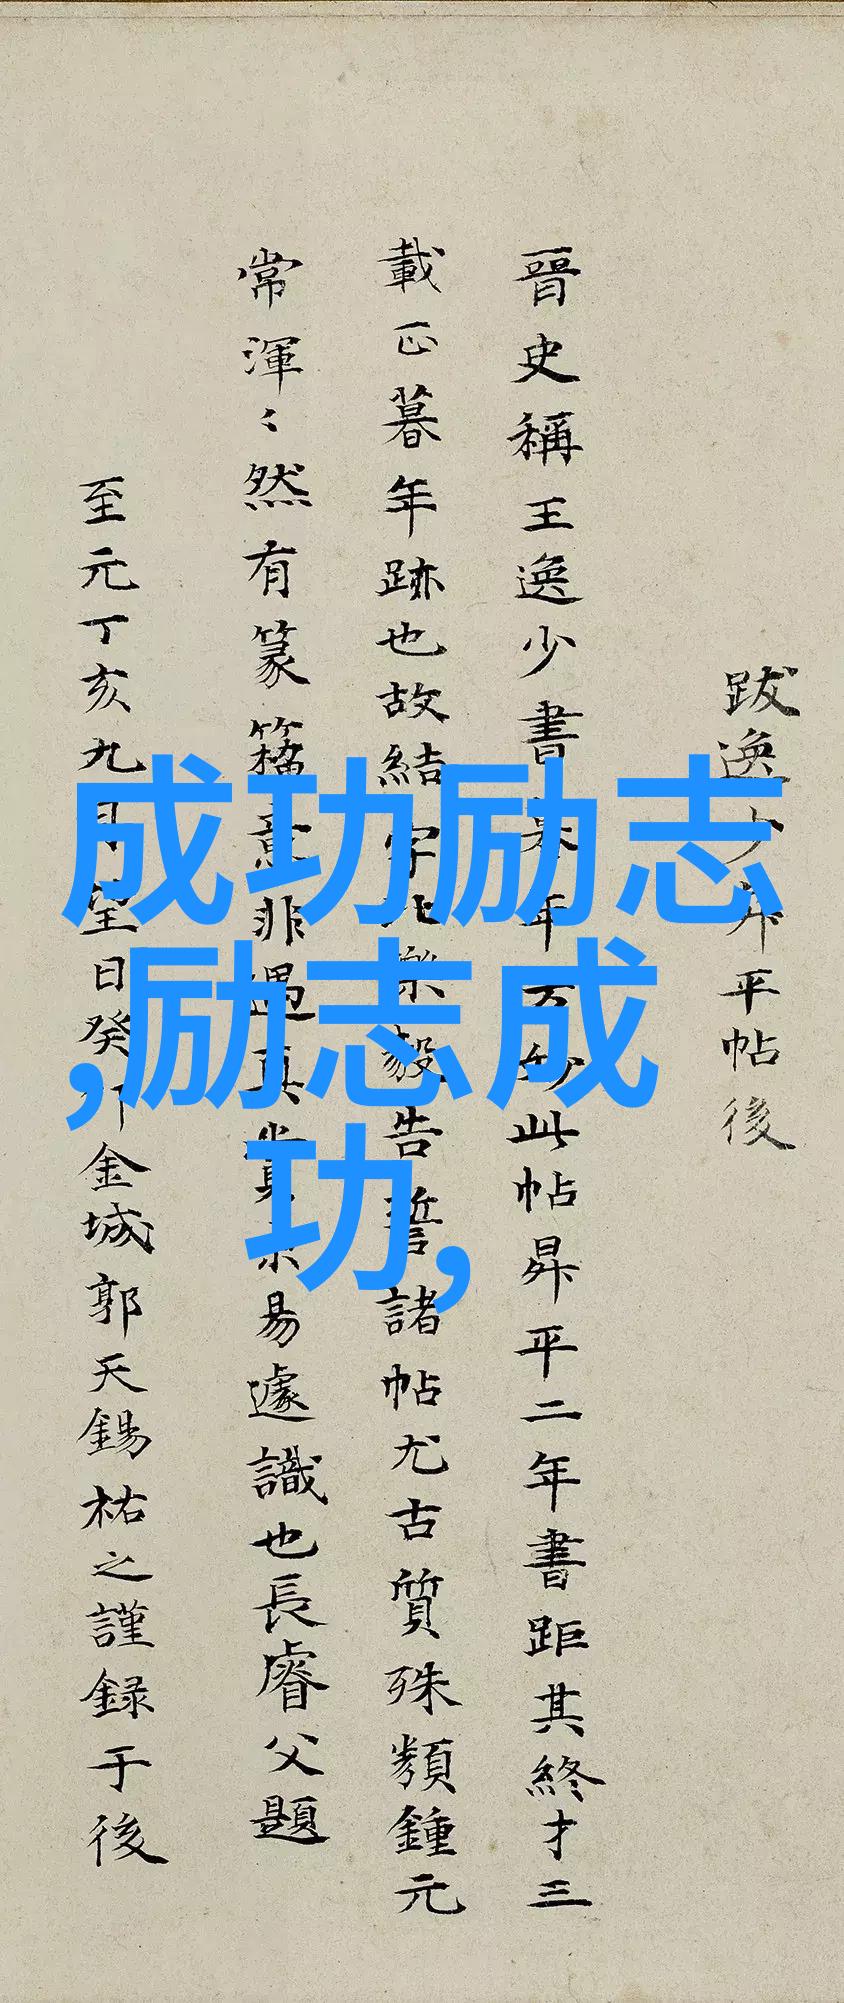 跋逸少昇平帖後
晉史稱王逸少書暮年方妙此帖昇平二年書距其終才三
載正暮年跡也故結字比樂毅告誓諸帖尤古質殊類鍾元
常渾〻然有篆籀意非遇真賞未易遽識也長睿父題
至元丁亥九月望日癸卯金城郭天錫祐之謹録于後
成功励志
,励志成
功,